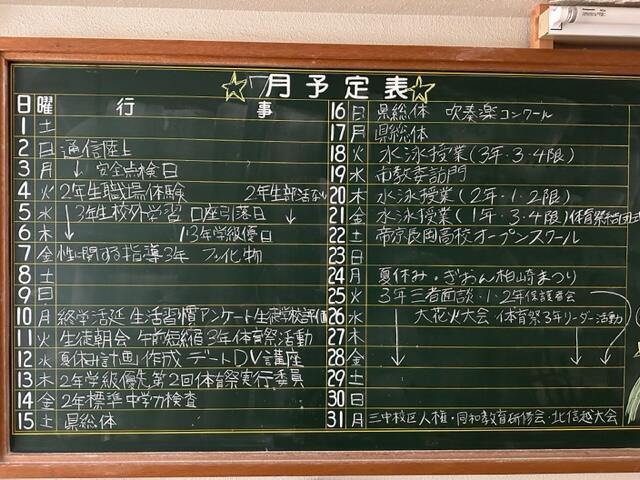 7月予定表
日 曜 行 事
1 土
2 日 通信陸上
3 月 ↓ 安全点検日
4 火 2年生職場体験 2年生部活なし
5 水 ↓ 3年生校外学習 口座引落日 ↓
6 木 ↓ 1.3年学級優日
7 金 性に関する指導3年 フッ化物
8 土
9 日
10 月 終学活延 生活習慣アンケート 生徒学校評価
11 火 生徒朝会 午前短縮 3年体育祭活動
12 水 夏休み計画作成 デートDV講座
13 木 2年学級優先 第2回体育祭実行委員
14 金 2年標準中学力検査
15 土 県総体
16 日 県総体 吹奏楽コンクール
17 月 県総体
18 火 水泳授業(3年・3・4限)
19 水 市教委訪問
20 木 水泳授業(2年・1・2限)
21 金 水泳授業(1年・3・4限)体育祭結団式
22 土 帝京長岡高校オープンスクール
23 日
24 月 夏休み・ぎおん柏崎まつり
25 火 3年三者面談・1・2年保護者会
26 水 大花火大会 体育祭3年リーダー活動
27 木
28 金 ↓ ↓ ↓
29 土
30 日
31 月 三中校区人権・同和教育研修会・北信越大会